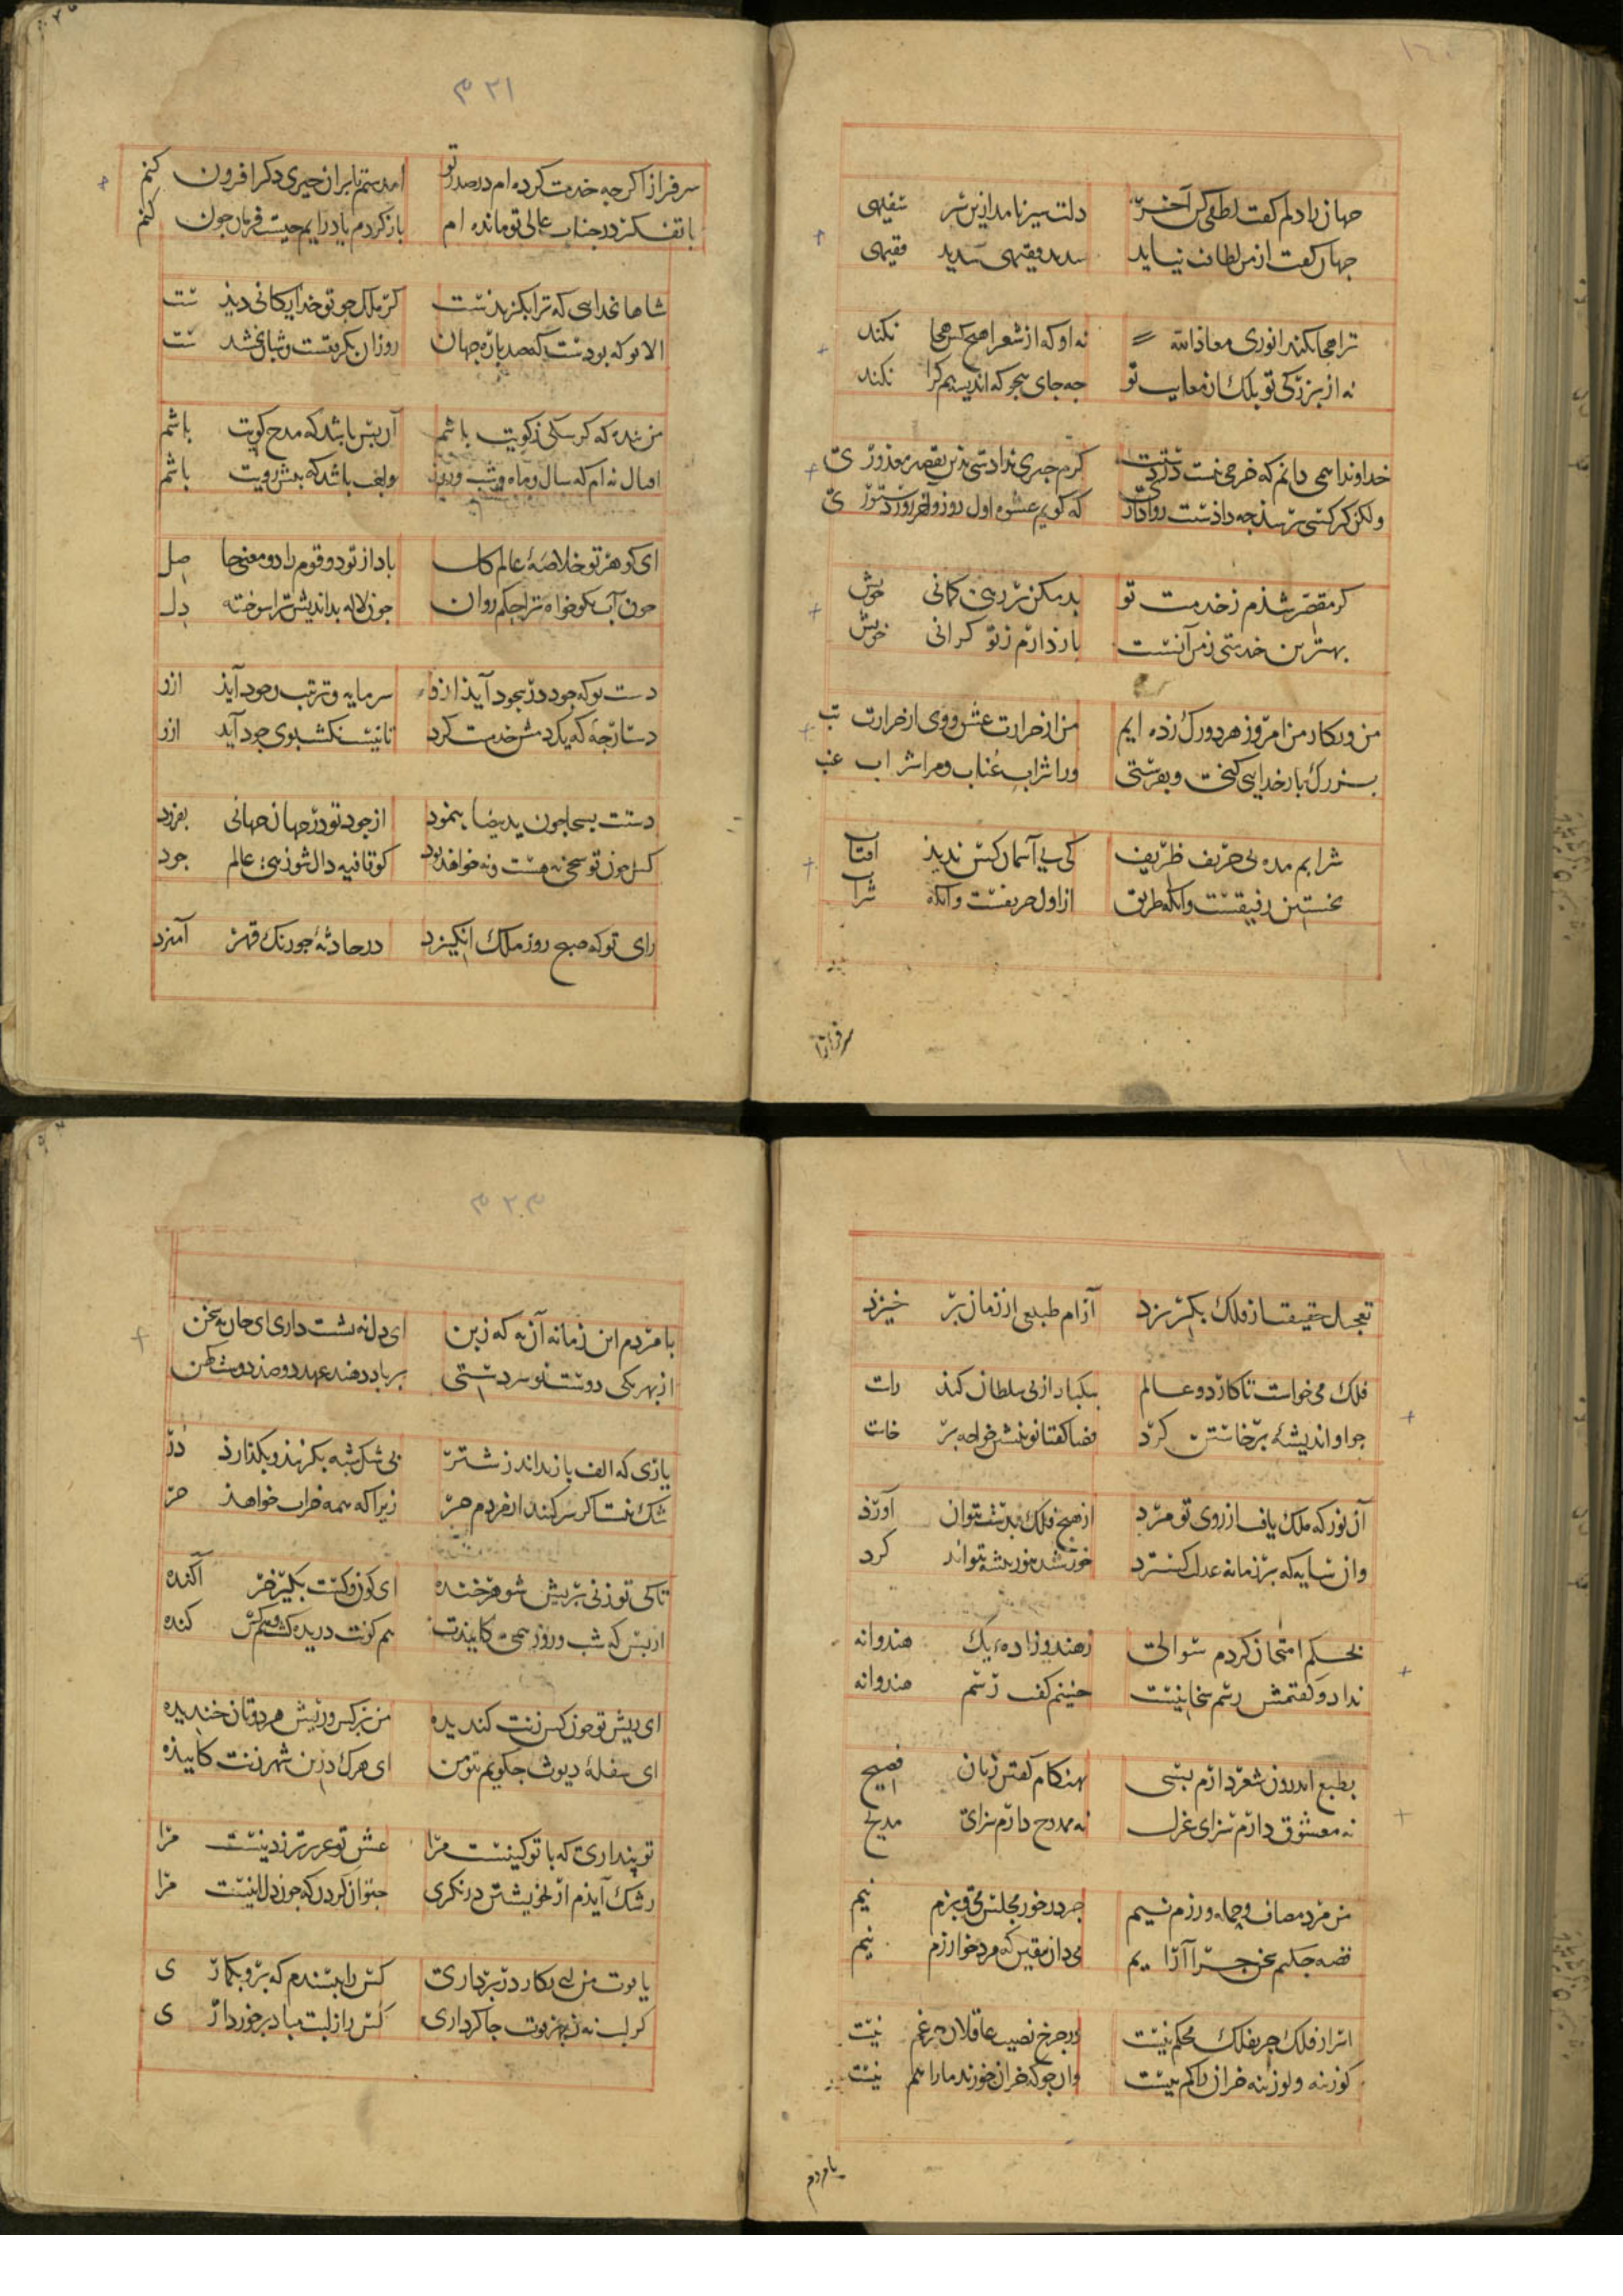 جهان را دلم گفت لطفی کن آخر دلت سیر نامد ازین شر سفیهی
جهان گفت از من لطافت نیاید سدید فقیهی سدید فقیهی
ترا هجا نکند انوری معاذالله نه او که از شعرا هیچکس هجا نکند
نه از بزرگی تو بلک از معایب تو چه جای هجو که اندیشه هم کرا نکند
خداوندا همی دانم که خرجی نیست در دستت کرم چیزی ندادستی بدین تقصیر معذوری
ولکن گر کسی پرسد چه دادست روا داری که گویم عشوه اول روز و آخر روز دستوری
گر مقصر شدم ز خدمت تو بد مکن بر رهی گمانی خویش
بهترین خدمتی ز من آنست باز دارم ز تو گرانی خویش
من و نگار من امروز هر دو رگ زده ایم من از حرارت عشق و وی از حرارت تب
بزرگ بار خدایی کنخت و بفرستی ورا شراب عناب و مرا شراب عنب
شرابم مده بی حریف ظریف کی بی آسمان کس ندید آفتاب
نخستین رفیقست وانگه طریق از اول حریفست وانگه شراب
سرفرازا
٣٢١
سرفرازا گرچه خدمت کرده ام در صدر تو امدستم تا بران چیزی دگر افزون کنم
با تفکر در جناب عالی تو مانده ام باز گردم یا درایم چیست فرمان چون کنم
شاها بخدایی که ترا بگزیدست گر ملک چو تو خدایگانی دیدست
الا تو که بودست که صد باره جهان روزان بگرفتست و شبان بخشیدست
من بنده که کر سگی ز کویت باشم آن بیش باشد که مدح گویت باشم
اقبال نه ام که سال و ماه و شب و روز واجب باشد که پیش رویت باشم
ای گوهر تو خلاصهٔ عالم گل باد از تو دو قوم را دو معنی حاصل
چون آب نکوخواه ترا حکم روان چون لاله بداندیش ترا سوخته دل
دست تو که جود در بجود آید ازو سرمایه و ترتیب وجود آید ازو
دستارچهٔ که یک دمش خدمت کرد تا نیست نکشت بوی جود آید ازو
دستت بسخا چون ید بیضا بنمود از جود تو در جهان جهانی بفزود
کس چون تو سخی نه هست و نه خواهد بود گو قافیه دال شو زهی عالم جود
رای تو که صبح روز ملک انگیزد در حادثهٔ چو رنگ قهر آمیزد
تعجیل حقیقت از فلک بگریزد آرام طبیعی از زمان برخیزد
فلک می خواست تا کار دو عالم بیکبار از پی سلطان کند راست
چو او اندیشهٔ برخاستن کرد قضا گفتا تو بنشین خواجه برخاست
آن نور که ملک یافت از روی تو مرد از هیچ فلک بدست نتوان آورد
وان سایه که بر زمانه عدلت گسترد خورشید بنور بیشه نتواند کرد
بحکم امتحان کردم سوالی ز هندوزادهٔ یک هندوانه
نداد و گفتمش رسم سخا نیست چنینم گفت رسم هندوانه
بطبع اندرون شعر دارم بسی بهنگام گفتن زبان فصیح
نه معشوق دارم سزای غزل نه ممدوح دارم سزای مدیح
من مرد مصاف و حمله و رزم نیم جز در خور مجلس می و بزم نیم
قصه چکنم سخن چرا آرایم می دان بیقین که مرد خوارزم نیم
اسرار فلک جز بفلک محکم نیست در چرخ نصیب عاقلان جز غم نیست
گوزینه و لوزینه خران را کم نیست وان جو که خران خورند ما را هم نیست
با مردم
٣٢٣
با مردم این زمانه آن به که ز بن ای دل نه نشست داری ای جان نه سخن
از بهر یکی دوست نو سردستی بر باد دهند عهد دو صد دوست کهن
یاری که الف باز نداند ز شتر بی شک شبه بگزیند و بگذارد در
شک نیست اگر سرکند از مردم حر زیرا که همه خراب خواهد حر
تا کی تو زنی بریش شوهر خنده ای کون و کست بکیر خر آکنده
از بس که شب و روز همی گایندت هم کونت دریده گشت و هم کس کنده
ای ریش تو چون کس زنت گندیده من بر کس و ریش هر دوتان خندیده
ای سفلهٔ دیوث چگویم تو من ای هرک درین شهر زنت گاییده
تو پنداری که با تو کینست مرا عشق تو عزیزتر ز دینست مرا
رشک آیدم ار بخویشتن درنگری چتوان کردن که چون دل اینست مرا
یاقوت من لب بکار در برداری کس را بسندم که برو بگماری
کر لب نه ز بهر قوت جا کرداری کس را ز لبت مباد برخورداری